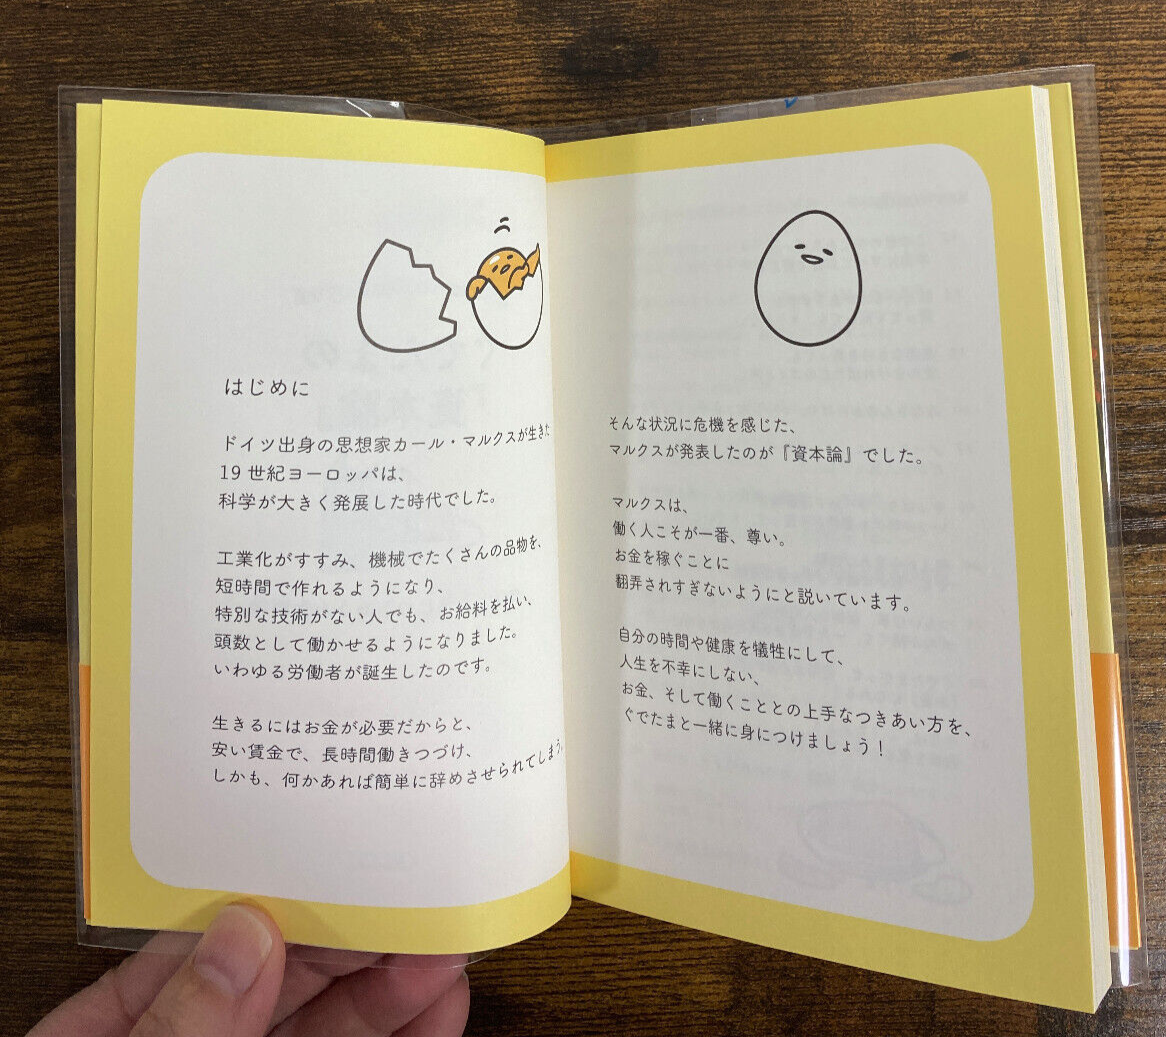 はじめに
ドイツ出身の思想家カール・マルクスが生きた
19世紀ヨーロッパは、
科学が大きく発展した時代でした。
工業化がすすみ、機械でたくさんの品物を、
短時間で作れるようになり、
特別な技術がない人でも、お給料を払い、
頭数として働かせるようになりました。
いわゆる労働者が誕生したのです。
生きるにはお金が必要だからと、
安い賃金で、長時間働きつづけ、
しかも、何かあれば簡単に辞めさせられてしまう。
そんな状況に危機を感じた、
マルクスが発表したのが『資本論』でした。
マルクスは、
働く人こそが一番、尊い。
お金を稼ぐことに
翻弄されすぎないようにと説いています。
自分の時間や健康を犠牲にして、
人生を不幸にしない、
お金、そして働くこととの上手なつきあい方を、
ぐでたまと一緒に身につけましょう！